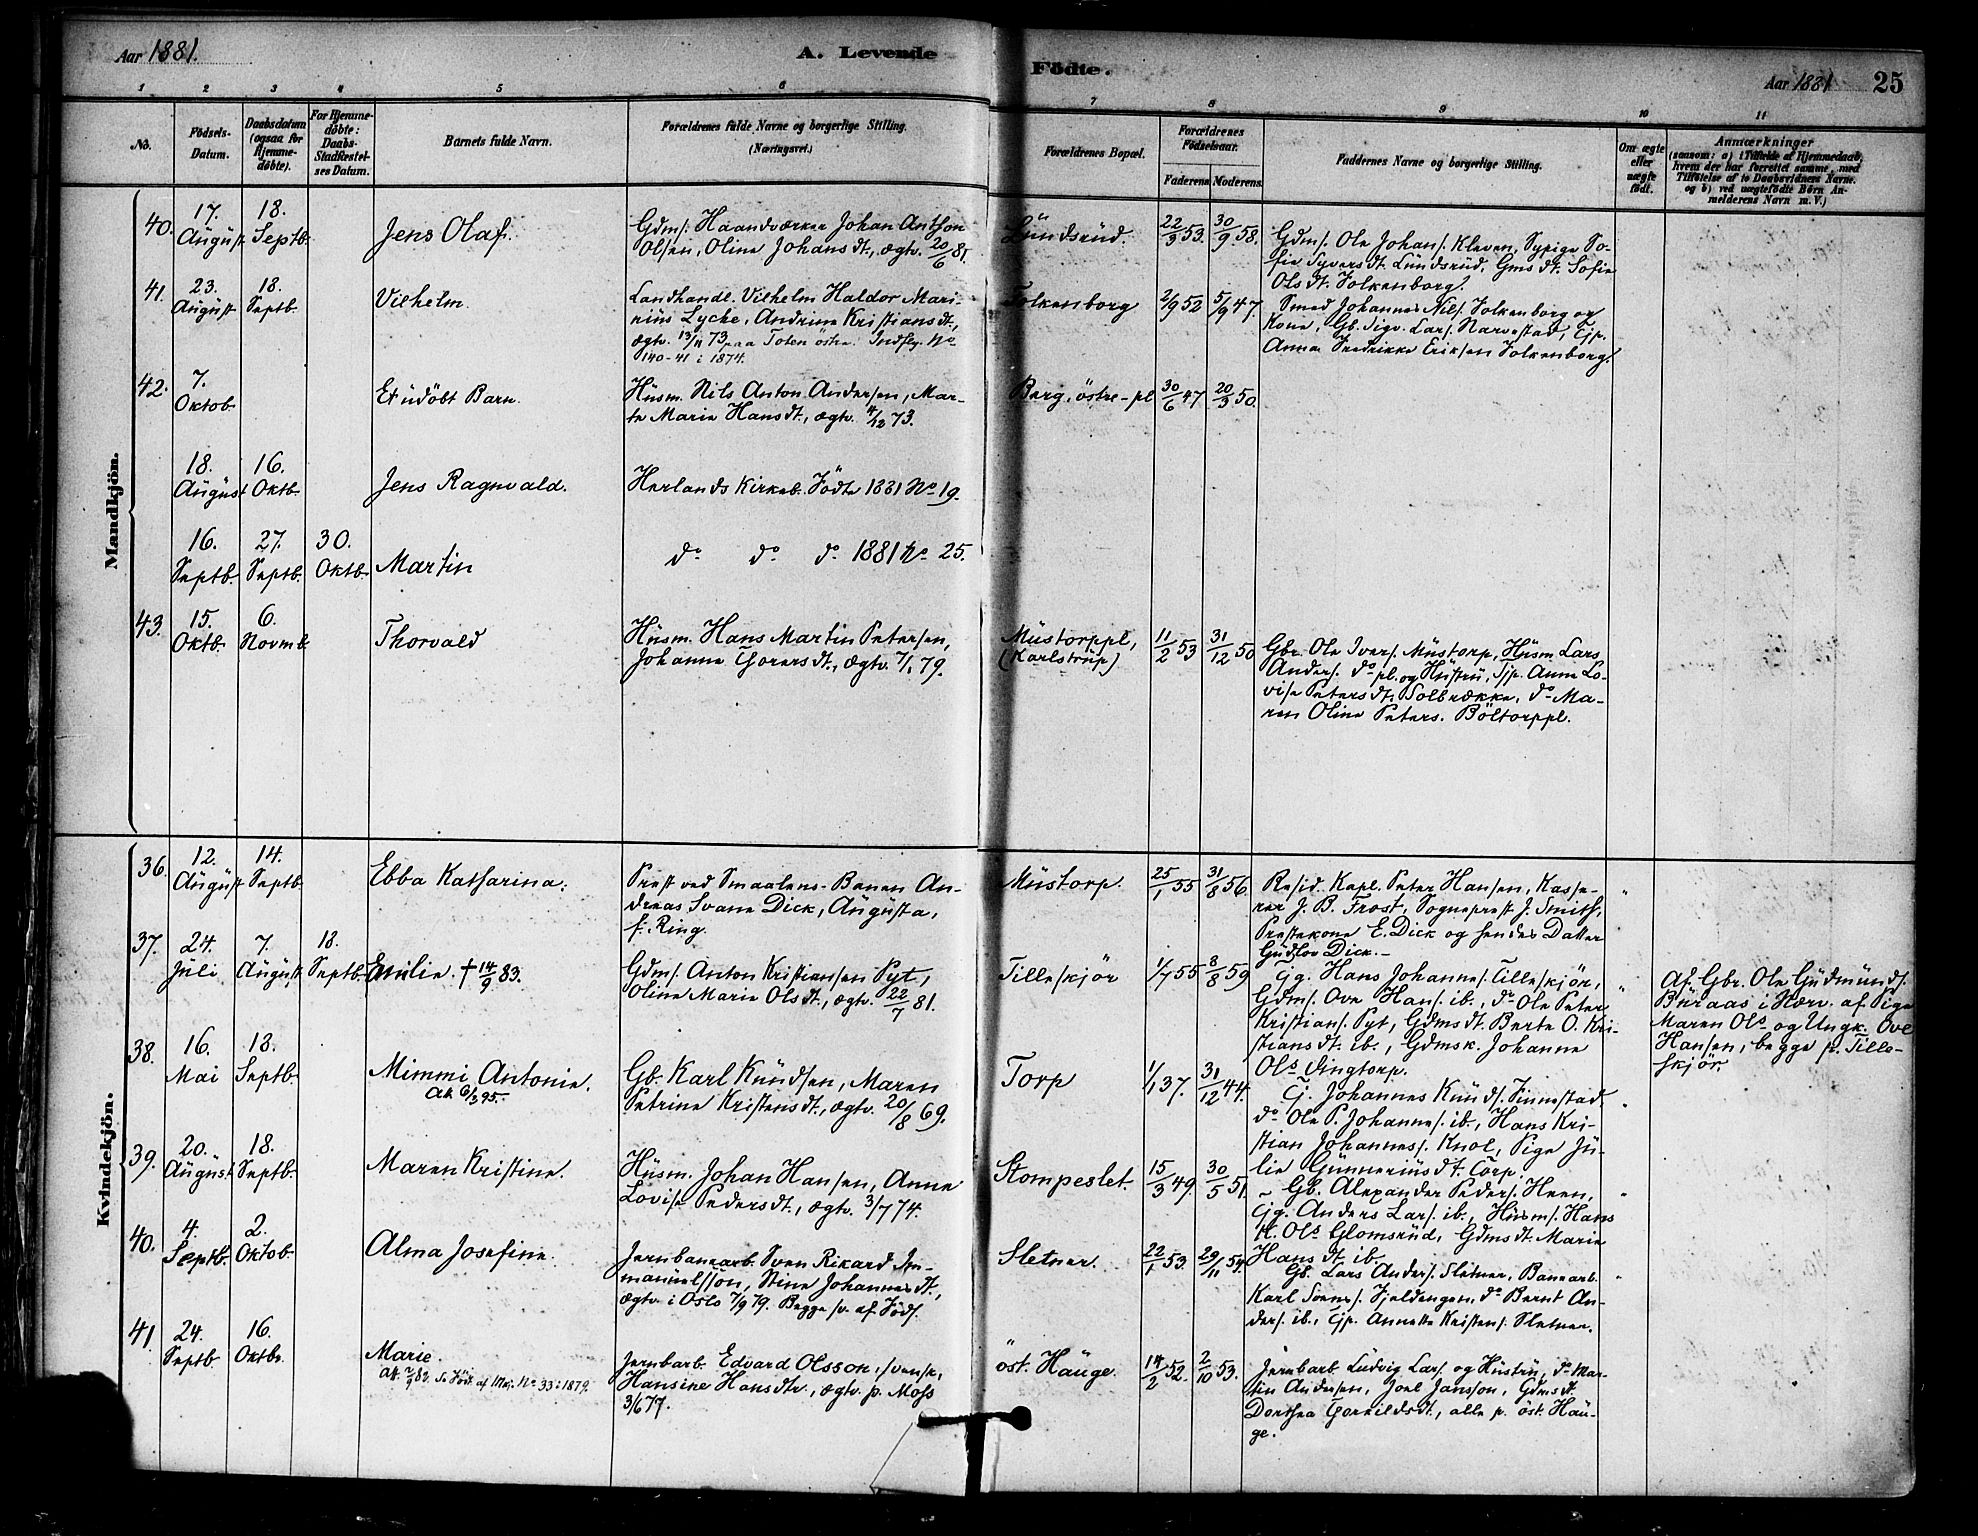 Aar 1881.
A. Levende Födte.
Aar 1881
25
1 2 3 4 5 6 7 8 9 10 11
No.
Födsels-Datum.
Daabsdatum (ogsaa for Hjemme-döbte).
For Hjemme-döbte: Daabs-Stadfæstel-ses Datum.
Barnets fulde Navn.
Forældrenes fulde Navne og borgerlige Stilling.
(Næringsvei.)
Forældrenes Bopæl.
Forældrenes Födselsaar.
Faderens. Moderens.
Faddernes Navne og borgerlige Stilling.
Om ægte eller uægte födt.
Anmærkninger
(saasom: a) i Tilfælde af Hjemmedaab,
hvem der har forrettet samme, med
Tilföielse af to Daabsvidners Navne.
og b) ved uægtefödte Börn An-
melderens Navn m. V.)
Mandkjön.
40. 17. August 18. Septb.
Jens Olaf.
Gdms. Haandværker Johan Anthon
Olsen, Oline Johansdt., ægtv. 20/6 81.
Lundsrud.
22/3 53. 30/9 58.
Gdms. Ole Johans. Kleven, Sypige So-
fie Syversdt. Lundsrud, Gmsdt. Sofie
Olsdt. Folkenborg.
41. 23. August 18. Septb.
Vilhelm.
Landhandl. Vilhelm Haldor Mari-
nius Lyche, Andrine Kristiansdt.,
ægtv. 13/11 73 paa Toten östre. Indflg. No
140-41 i 1874.
Folkenborg
2/9 52 5/9 47.
Smed Johannes Nils. Folkenborg og
Kone, Gb. Sigv. Lars. Narvestad, Tjp.
Anna Fredrikke Eriksen Folkenborg.
42. 7. Oktob.
Et udöbt Barn.
Husm. Nils Anton Andersen, Mar-
te Marie Hansdt., ægtv. 4/12 73.
Berg, östre-pl
30/6 47 20/3 50.
18. August 16. Oktb.
Jens Ragnvald.
Herlands Kirkeb. Födte 1881 No 19.
16. Septb. 27. Septb. 30. Oktb.
Martin
do do do 1881 No 25.
43. 15. Oktb. 6. Novmb
Thorvald
Husm. Hans Martin Petersen,
Johanne Torersdt., ægtv. 7/1 79.
Mustorppl,
(Karlstrup)
11/2 53 31/12 50
Gbr. Ole Ivers. Mustorp, Husm Lars
Anders. do pl. og Hustru, Tjp. Anne Lo-
vise Petersdt. Solbrække, do Ma-
ren Oline Peters. Böltorppl.
Kvindekjön.
36. 12. August 14. Septb
Ebba Katharina.
Prest ved Smaalens-Banen An-
dreas Svane Dick, Augusta,
f. Ring.
Mustorp.
25/1 55 31/8 56
Resid. Kapl. Peter Hansen, Kasse-
rer J. B. Frost, Sogneprest J. Smith,
Prestekone E. Dick og hendes Datter
Gudlov Dick.-
"
37. 24. Juli 7. August. 18. Septb.
Emilie. † 14/9 83.
Gdms. Anton Kristiansen Pyt,
Oline Marie Olsdt., ægtv. 22/7 81.
Tilleskjör
1/7 55 8/8 59
Tjg. Hans Johannes. Tilleskjör,
Gdms. Ove Hans. ib., do Ole Peter
Kristians. Pyt, Gdmsdt. Berte O. Kri-
stiansdt. ib., Gdmsk. Johanne
Ols. Vingtorp.
"
Af. Gbr. Ole Gudmunds.
Buraas i Nærv. af Pige
Maren Ols. og Ungk. Ove
Hansen, begge p. Tille-
skjör.
38. 16. Mai 18. Septb.
Mimmi Antonie.
Att. 6/3 95.-
Gb. Karl Knudsen, Maren
Petrine Kristensdt., ægtv. 20/8 69.
Torp
1/1 37. 31/12 44.
Tj. Johannes Knuds. Finnestad,
do Ole P. Johannes. ib., Hans Kri-
stian Johannes. Knol, Pige Ju-
lie Gunneriusdt. Torp.
"
39. 20. August 18. Septb.
Maren Kristine.
Husm. Johan Hansen, Anne
Lovise Pedersdt., ægtv. 3/7 74.
Stompeslet.
15/3 49. 30/5 51.
- Gb. Alexander Peders. Heen,
Tjg. Anders Lars. ib., Husms. Hans
H. Ols. Glomsrud, Gdmsdt. Marie
Hansdt. ib.
"
40. 4. Septb. 2. Oktob.
Alma Josefine.
Jernbanearb. Sven Rikard Em-
manuelsson, Stine Johannesdt.,
ægtv. i Oslo 7/9 79. Begge sv. af Föds.
Sletner.
22/1 53. 29/11 54.
Gb. Lars Anders. Sletner, Banearb.
Karl Svens. Fjeldengen, do Bernt An-
ders. ib., Tjp. Annette Kristens. Sletner.
"
41. 24. Septb. 16. Oktbr.
Marie.
No 33 i 1879.
Jernbarb. Edvard Olsson, svensk,
Hansine Hansdtr., ægtv. p. Moss
3/6 77.
öst. Hauge.
14/2 52. 2/10 53.
Jernbarb. Ludvig Lars. og Hustru, do Mar-
tin Andersen, Joel Jansson, Gdmsdt.
Dorthea Torkildsdt., alle p. öst. Hau-
ge.